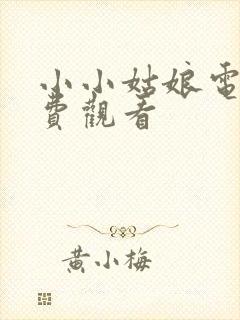 小小姑娘電
費觀看
黃小梅